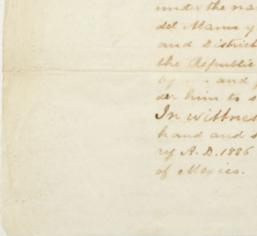 under the na
del Mamey
and District
the Republic
by and
der him to s
In witness
hand and s
ry A.D. 1886
of Mexico.